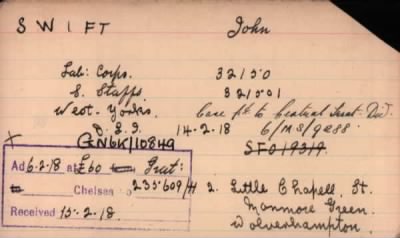 SWIFT John
Lab: Corps. 32150
S. Staffs 32501
West. Yorks. Care to Central
D.
14-2-18 6/MS/9288
X GN6K/10849 SF019319
Ad 6-2-18 at £60 Grat:
Chelsea 235609/H 2. Little Chapell, St.
Monmore Green.
Received 15-2-18. Wolverhampton.